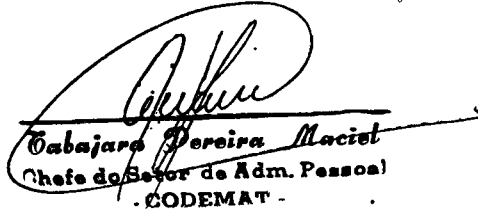 Tabajara Pereira Maciel
Chefe do Setor de Adm. Pessoal
- CODEMAT -